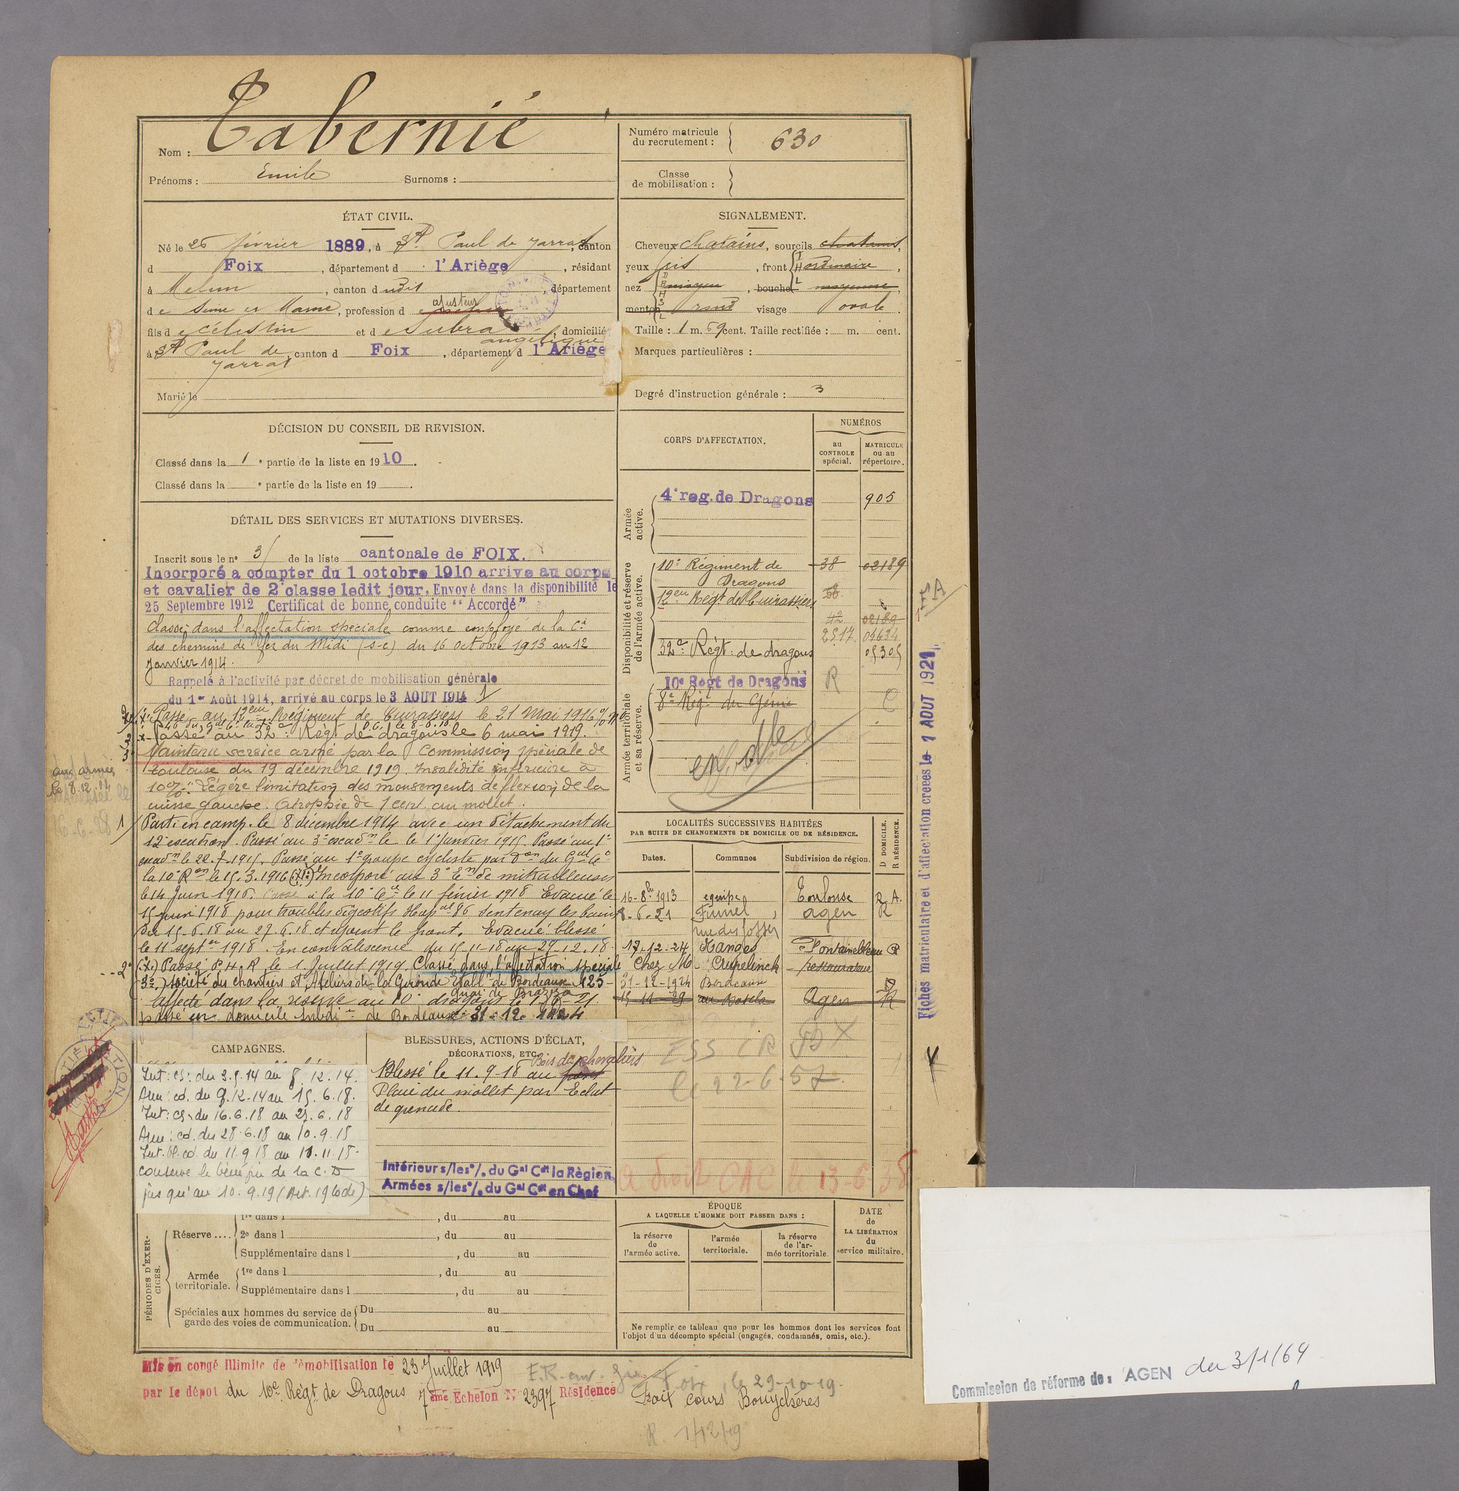 Nom : Tabernié
Prénoms : Emile Surnoms :
Numéro matricule du recrutement : 630
Classe de mobilisation :
ÉTAT CIVIL.
Né le 25 février 1889, à St Paul de Jarrat, canton
d Foix, département d l'Ariège, résidant
à Melun, canton dudit, département
de Seine et Marne, profession d ajusteur
fils de Célestin et de Subra angélique, domicilié
à St Paul de Jarrat, canton d Foix, département d l'Ariège
Marié le
SIGNALEMENT.
Cheveux chatains, sourcils chatains,
yeux gris, front ordinaire,
nez moyen, bouche moyenne,
menton rond visage ovale.
Taille : 1 m. 69 cent. Taille rectifiée : m. cent.
Marques particulières :
Degré d'instruction générale : 3
DÉCISION DU CONSEIL DE REVISION.
Classé dans la 1e partie de la liste en 1910.
Classé dans la e partie de la liste en 19 .
CORPS D'AFFECTATION.
NUMÉROS
au CONTROLE spécial.
MATRICULE ou au répertoire.
Armée active.
4e reg. de Dragons 905
Disponibilité et réserve de l'armée active.
10e Régiment de Dragons 38 02189
12eme Régt de Cuirassiers
42 02189
2517. 09634
32e Régt de dragons 05305
Armée territoriale et sa réserve.
10e Regt de Dragons R
8e Régt du Génie C
DÉTAIL DES SERVICES ET MUTATIONS DIVERSES.
Inscrit sous le n° 31 de la liste cantonale de FOIX.
Incorporé a compter du 1 octobre 1910 arrive au corps
et cavalier de 2e classe ledit jour. Envoyé dans la disponibilité le
25 Septembre 1912 Certificat de bonne conduite "Accordé"
Classé dans l'affectation spéciale comme employé de la Cie
des chemins de fer du Midi (s-c) du 16 octobre 1913 au 12
janvier 1914.
Rappelé à l'activité par décret de mobilisation générale
du 1er Août 1914, arrivé au corps le 3 AOUT 1914
Passé au 12eme Régiment de Cuirassiers le 21 Mai 1916
Passé au 32e Régt de dragons le 6 mai 1919.
Maintenu service armé par la Commission spéciale de
Toulouse du 19 décembre 1919 Invalidité inférieure à
10%. Légère limitation des mouvements de flexion de la
cuisse gauche. Atrophie de 1 cent. au mollet.
Parti en camp. le 8 décembre 1914 avec un détachement du
12 escadron. Passé au 3e escadon le 1er Janvier 1915. Passé au 1er
escadn le 22.7.1915. Passé au 1er groupe cycliste par on du Gal Ct
la 10e Ron le 15.3.1916 Incorporé au 3e Em de mitrailleuses
le 14 Juin 1916. à la 10e Cie le 11 février 1918 Evacué le
15 juin 1918 pour troubles digestifs Hopal 86 Fontenay les bains
du 15.6.18 au 27.6.18 et rejoint le front. Evacué blessé
le 11 septre 1918. En convalescence du 15-11-18 au 29-12-18.
Passé P.H.R le 1 Juillet 1919 Classé dans l'affectation spéciale
Société des chantiers et Ateliers de la Gironde Etabl. de Bordeaux 125
quai de Brazza
Affecté dans la réserve au 10e dragons le
passé en domicile Subdion de Bordeaux 31-12-1924
LOCALITÉS SUCCESSIVES HABITÉES
PAR SUITE DE CHANGEMENTS DE DOMICILE OU DE RÉSIDENCE.
Dates. Communes Subdivision de région. D DOMICILE. R RÉSIDENCE.
16-8bre 1913 équipe Toulouse R. A.
8-6-21 Fumel, agen R
rue des fossés
17-12-24 Xanges Fontainebleau R
Chez M. Cupelinck restaurateur
31-12-1924 Bordeaux D
15-11-29 Agen R
ESS CR BX
le 22-6-57
Fiches matriculaire et d'affectation creées le 1 AOUT 1921
CAMPAGNES.
Int: cs: du 3.8.14 au 7.12.14.
Aux: cd. du 8.12.14 au 15.6.18.
Int: cs. du 16.6.18 au 27.6.18
Aux: cd. du 28.6.18 au 10.9.18
Int. bl. cd. du 11.9.18 au 11.11.18.
conserve le bénéfice de la C. D
jusqu'au 10.9.19 (Art. 19 code)
BLESSURES, ACTIONS D'ÉCLAT, DÉCORATIONS, ETC.
Blessé le 11.9.18 au Bois des chevaliers
Plaie du mollet par Eclat
de grenade.
Intérieur s/les o/. du Gal Ct la Région
Armées s/les o/. du Gal Ct en Chef
a droit CAC le 13-6-58
PÉRIODES D'EXERCICES.
1re dans l , du au
Réserve .... 2e dans l , du au
Supplémentaire dans l , du au
Armée territoriale. 1re dans l , du au
Supplémentaire dans l , du au
Spéciales aux hommes du service de garde des voies de communication. Du au
Du au
ÉPOQUE
A LAQUELLE L'HOMME DOIT PASSER DANS :
la réserve de l'armée active.
l'armée territoriale.
la réserve de l'armée territoriale.
DATE de LA LIBÉRATION du service militaire.
Ne remplir ce tableau que pour les hommes dont les services font
l'objet d'un décompte spécial (engagés, condamnés, omis, etc.).
Mis en congé illimité de démobilisation le 23 Juillet 1919
par le dépot du 10e Régt de Dragons 7eme Echelon N° 2397 Résidence Foix cours Bouychères
Foix, le 29-10-19.
R. 1/12/19
Commission de réforme de : AGEN du 3/1/64